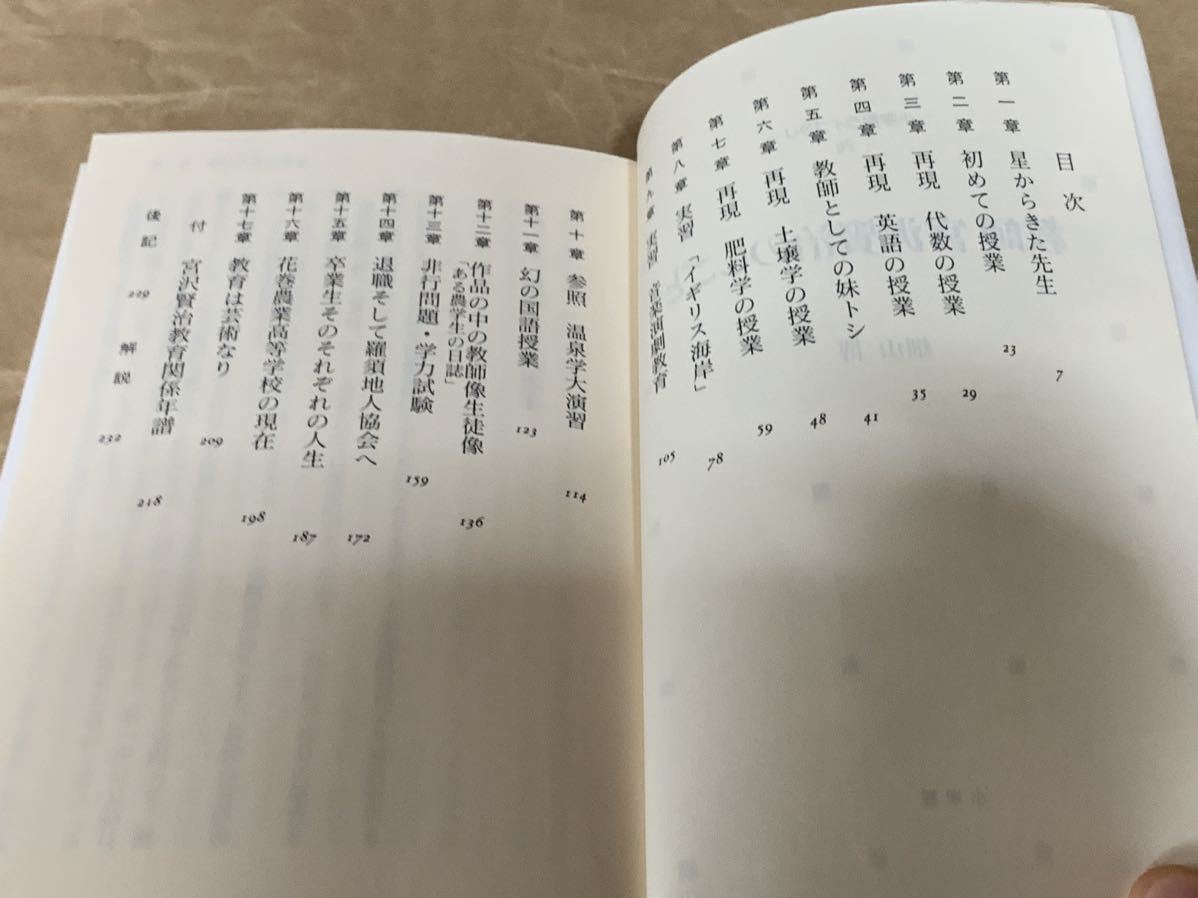 目次
第一章 星からきた先生 7
第二章 初めての授業 23
第三章 再現 代数の授業 29
第四章 再現 英語の授業 35
第五章 教師としての妹トシ 41
第六章 再現 土壌学の授業 48
第七章 再現 肥料学の授業 59
第八章 実習 「イギリス海岸」 78
第九章 実習 音楽演劇教育 105
第十章 参照 温泉学大演習 114
第十一章 幻の国語授業 123
第十二章 作品の中の教師像生徒像 136
「ある農学生の日誌」
第十三章 非行問題・学力試験 159
第十四章 退職そして羅須地人協会へ 172
第十五章 卒業生そのそれぞれの人生 187
第十六章 花巻農業高等学校の現在 198
第十七章 教育は芸術なり 209
付 宮沢賢治教育関係年譜 218
後記 229 解説 232